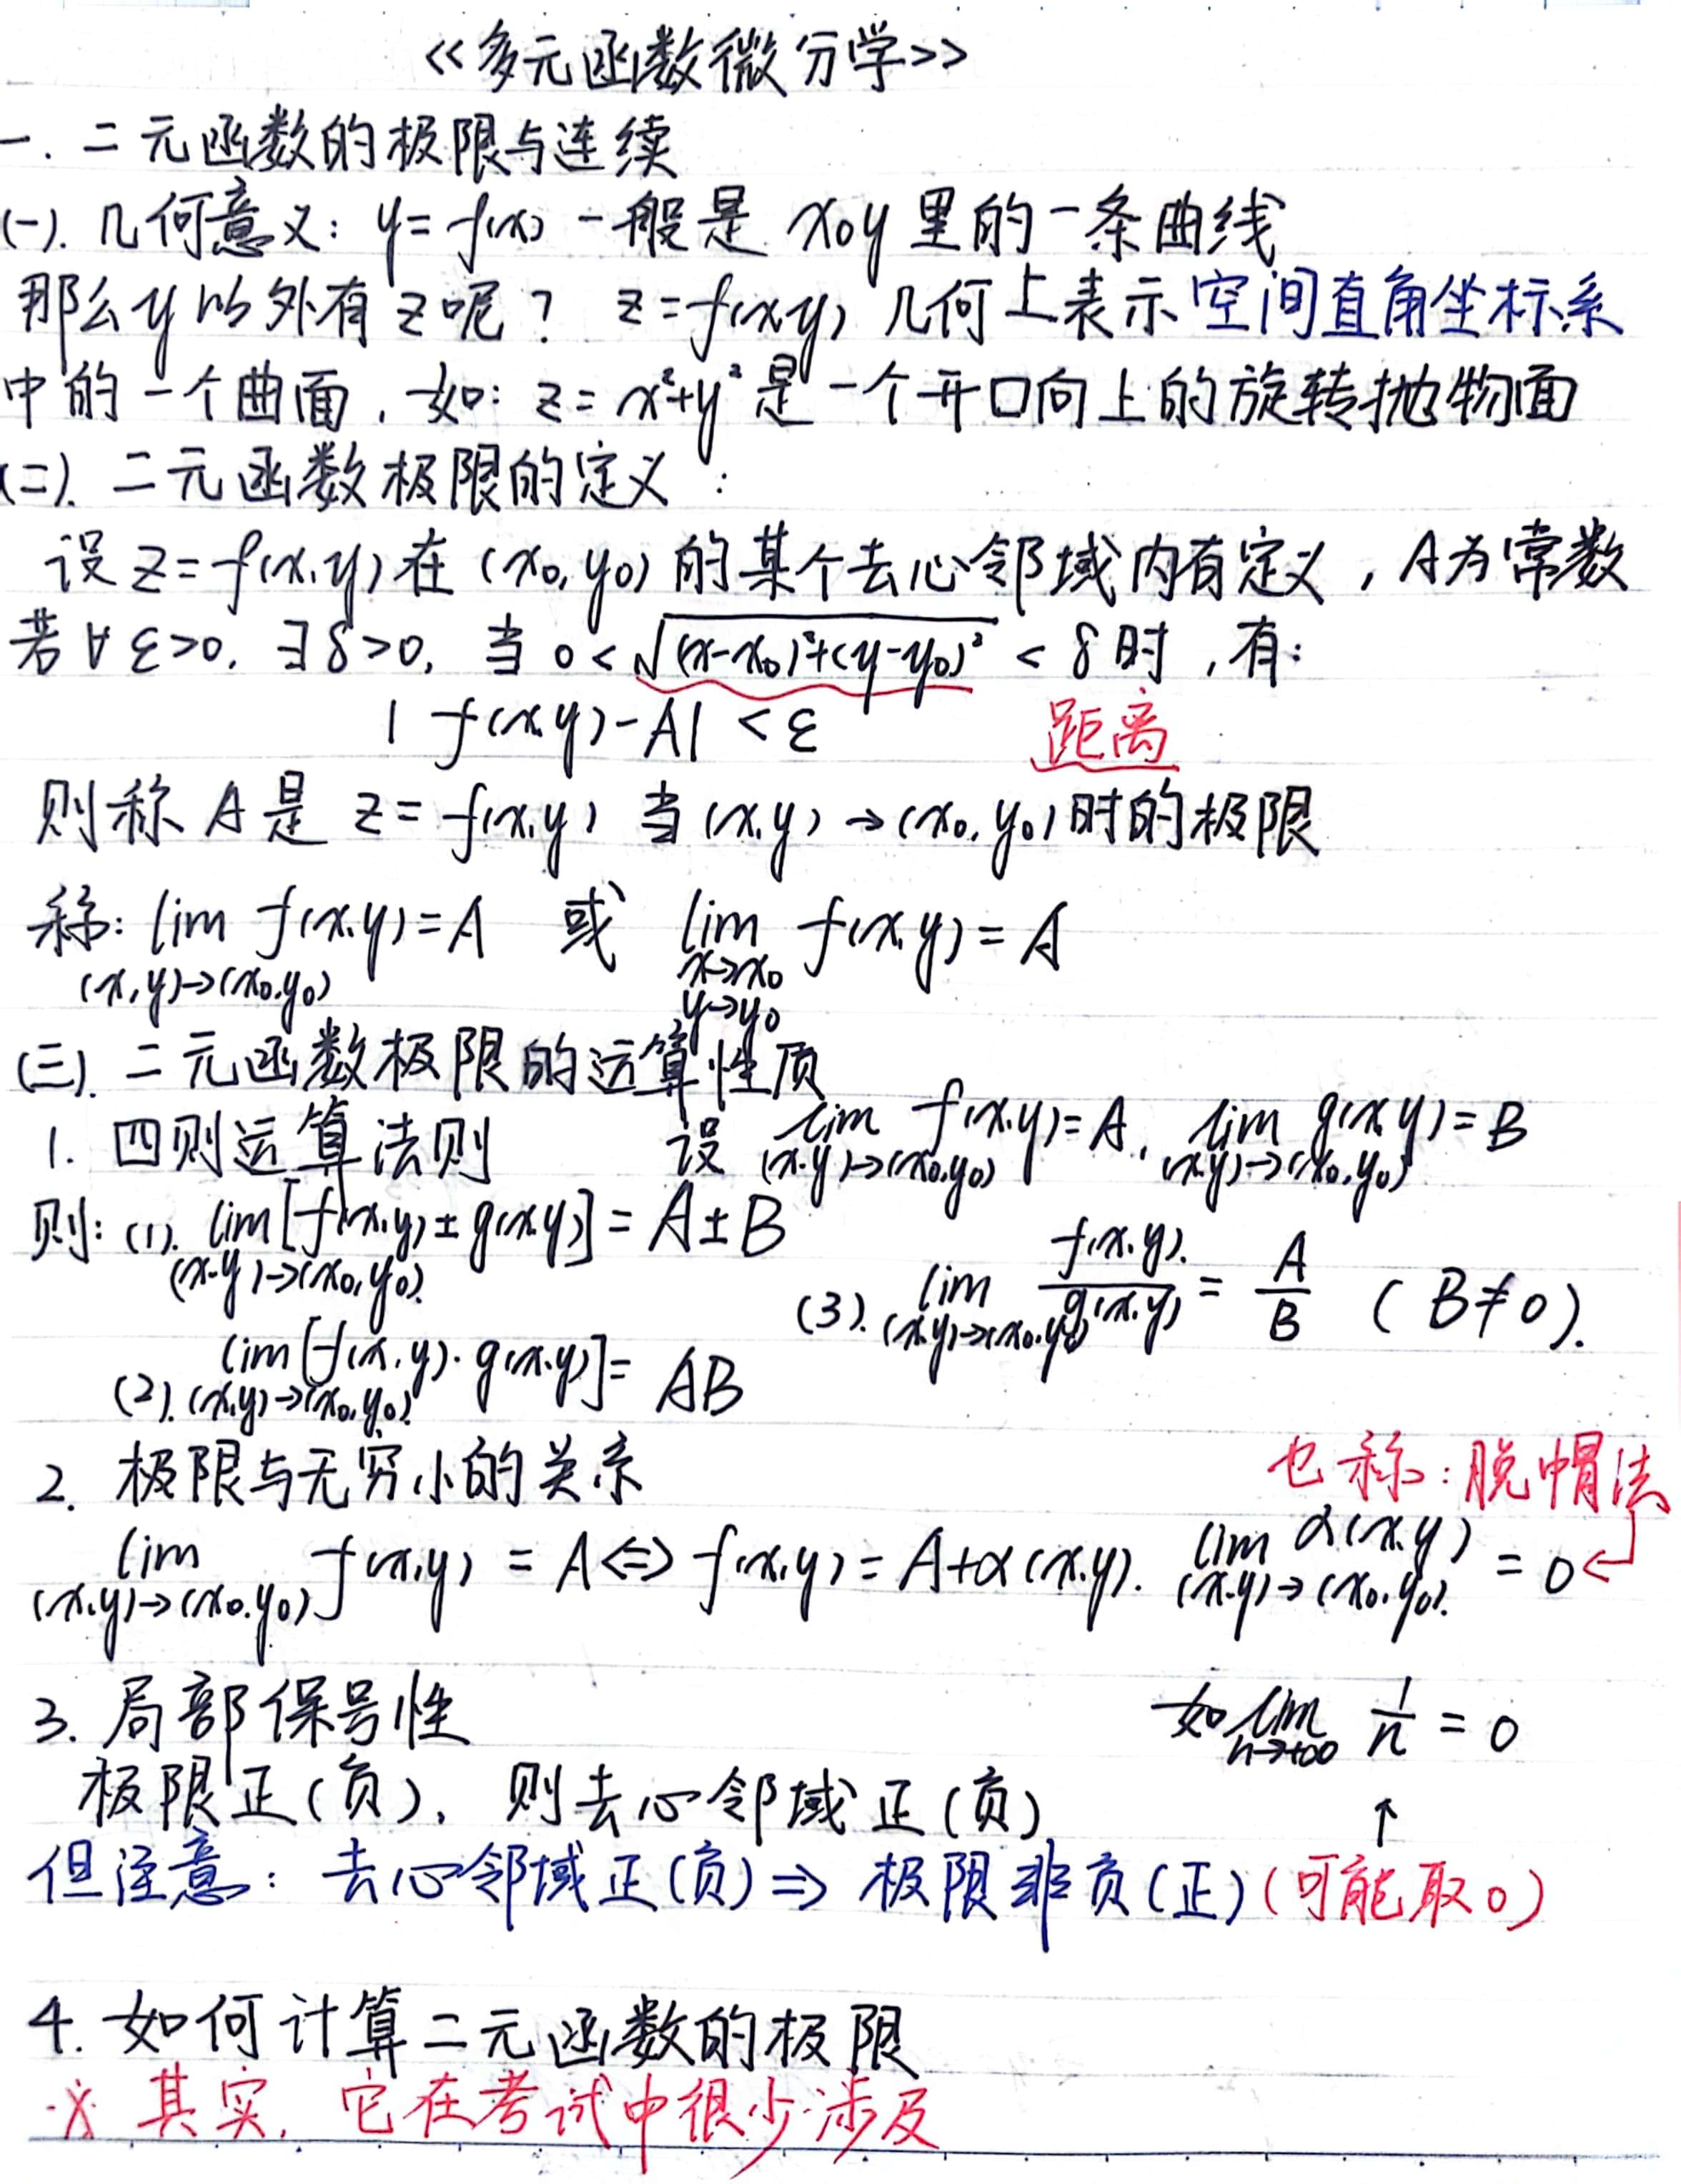 《多元函数微分学》
一. 二元函数的极限与连续
(一). 几何意义: y = f(x) 一般是 xoy 里的一条曲线
那么 y 以外有 z 呢? z = f(x,y) 几何上表示空间直角坐标系
中的一个曲面, 如: z = x²+y² 是一个开口向上的旋转抛物面
(二). 二元函数极限的定义:
设 z = f(x,y) 在 (x₀,y₀) 的某个去心邻域内有定义, A为常数
若 ∀ ε>0, ∃ δ>0, 当 0 < √((x-x₀)²+(y-y₀)²) < δ 时, 有:
| f(x,y) - A | < ε 距离
则称 A 是 z = f(x,y) 当 (x,y) → (x₀,y₀) 时的极限
称: lim f(x,y) = A 或 lim f(x,y) = A
(x,y)→(x₀,y₀) x→x₀
y→y₀
(三). 二元函数极限的运算性质
1. 四则运算法则 设 lim f(x,y) = A, lim g(x,y) = B
(x,y)→(x₀,y₀) (x,y)→(x₀,y₀)
则: (1). lim [f(x,y) ± g(x,y)] = A ± B
(x,y)→(x₀,y₀)
(3). lim f(x,y)/g(x,y) = A/B (B≠0).
(x,y)→(x₀,y₀)
(2). lim [f(x,y)·g(x,y)] = AB
(x,y)→(x₀,y₀)
2. 极限与无穷小的关系 也称: 脱帽法
lim f(x,y) = A ⇔ f(x,y) = A+α(x,y). lim α(x,y) = 0 ←
(x,y)→(x₀,y₀) (x,y)→(x₀,y₀)
3. 局部保号性 如 lim 1/n = 0
n→+∞
极限正(负), 则去心邻域正(负) ↑
但注意: 去心邻域正(负) ⇒ 极限非负(正) (可能取0)
4. 如何计算二元函数的极限
※ 其实, 它在考试中很少涉及